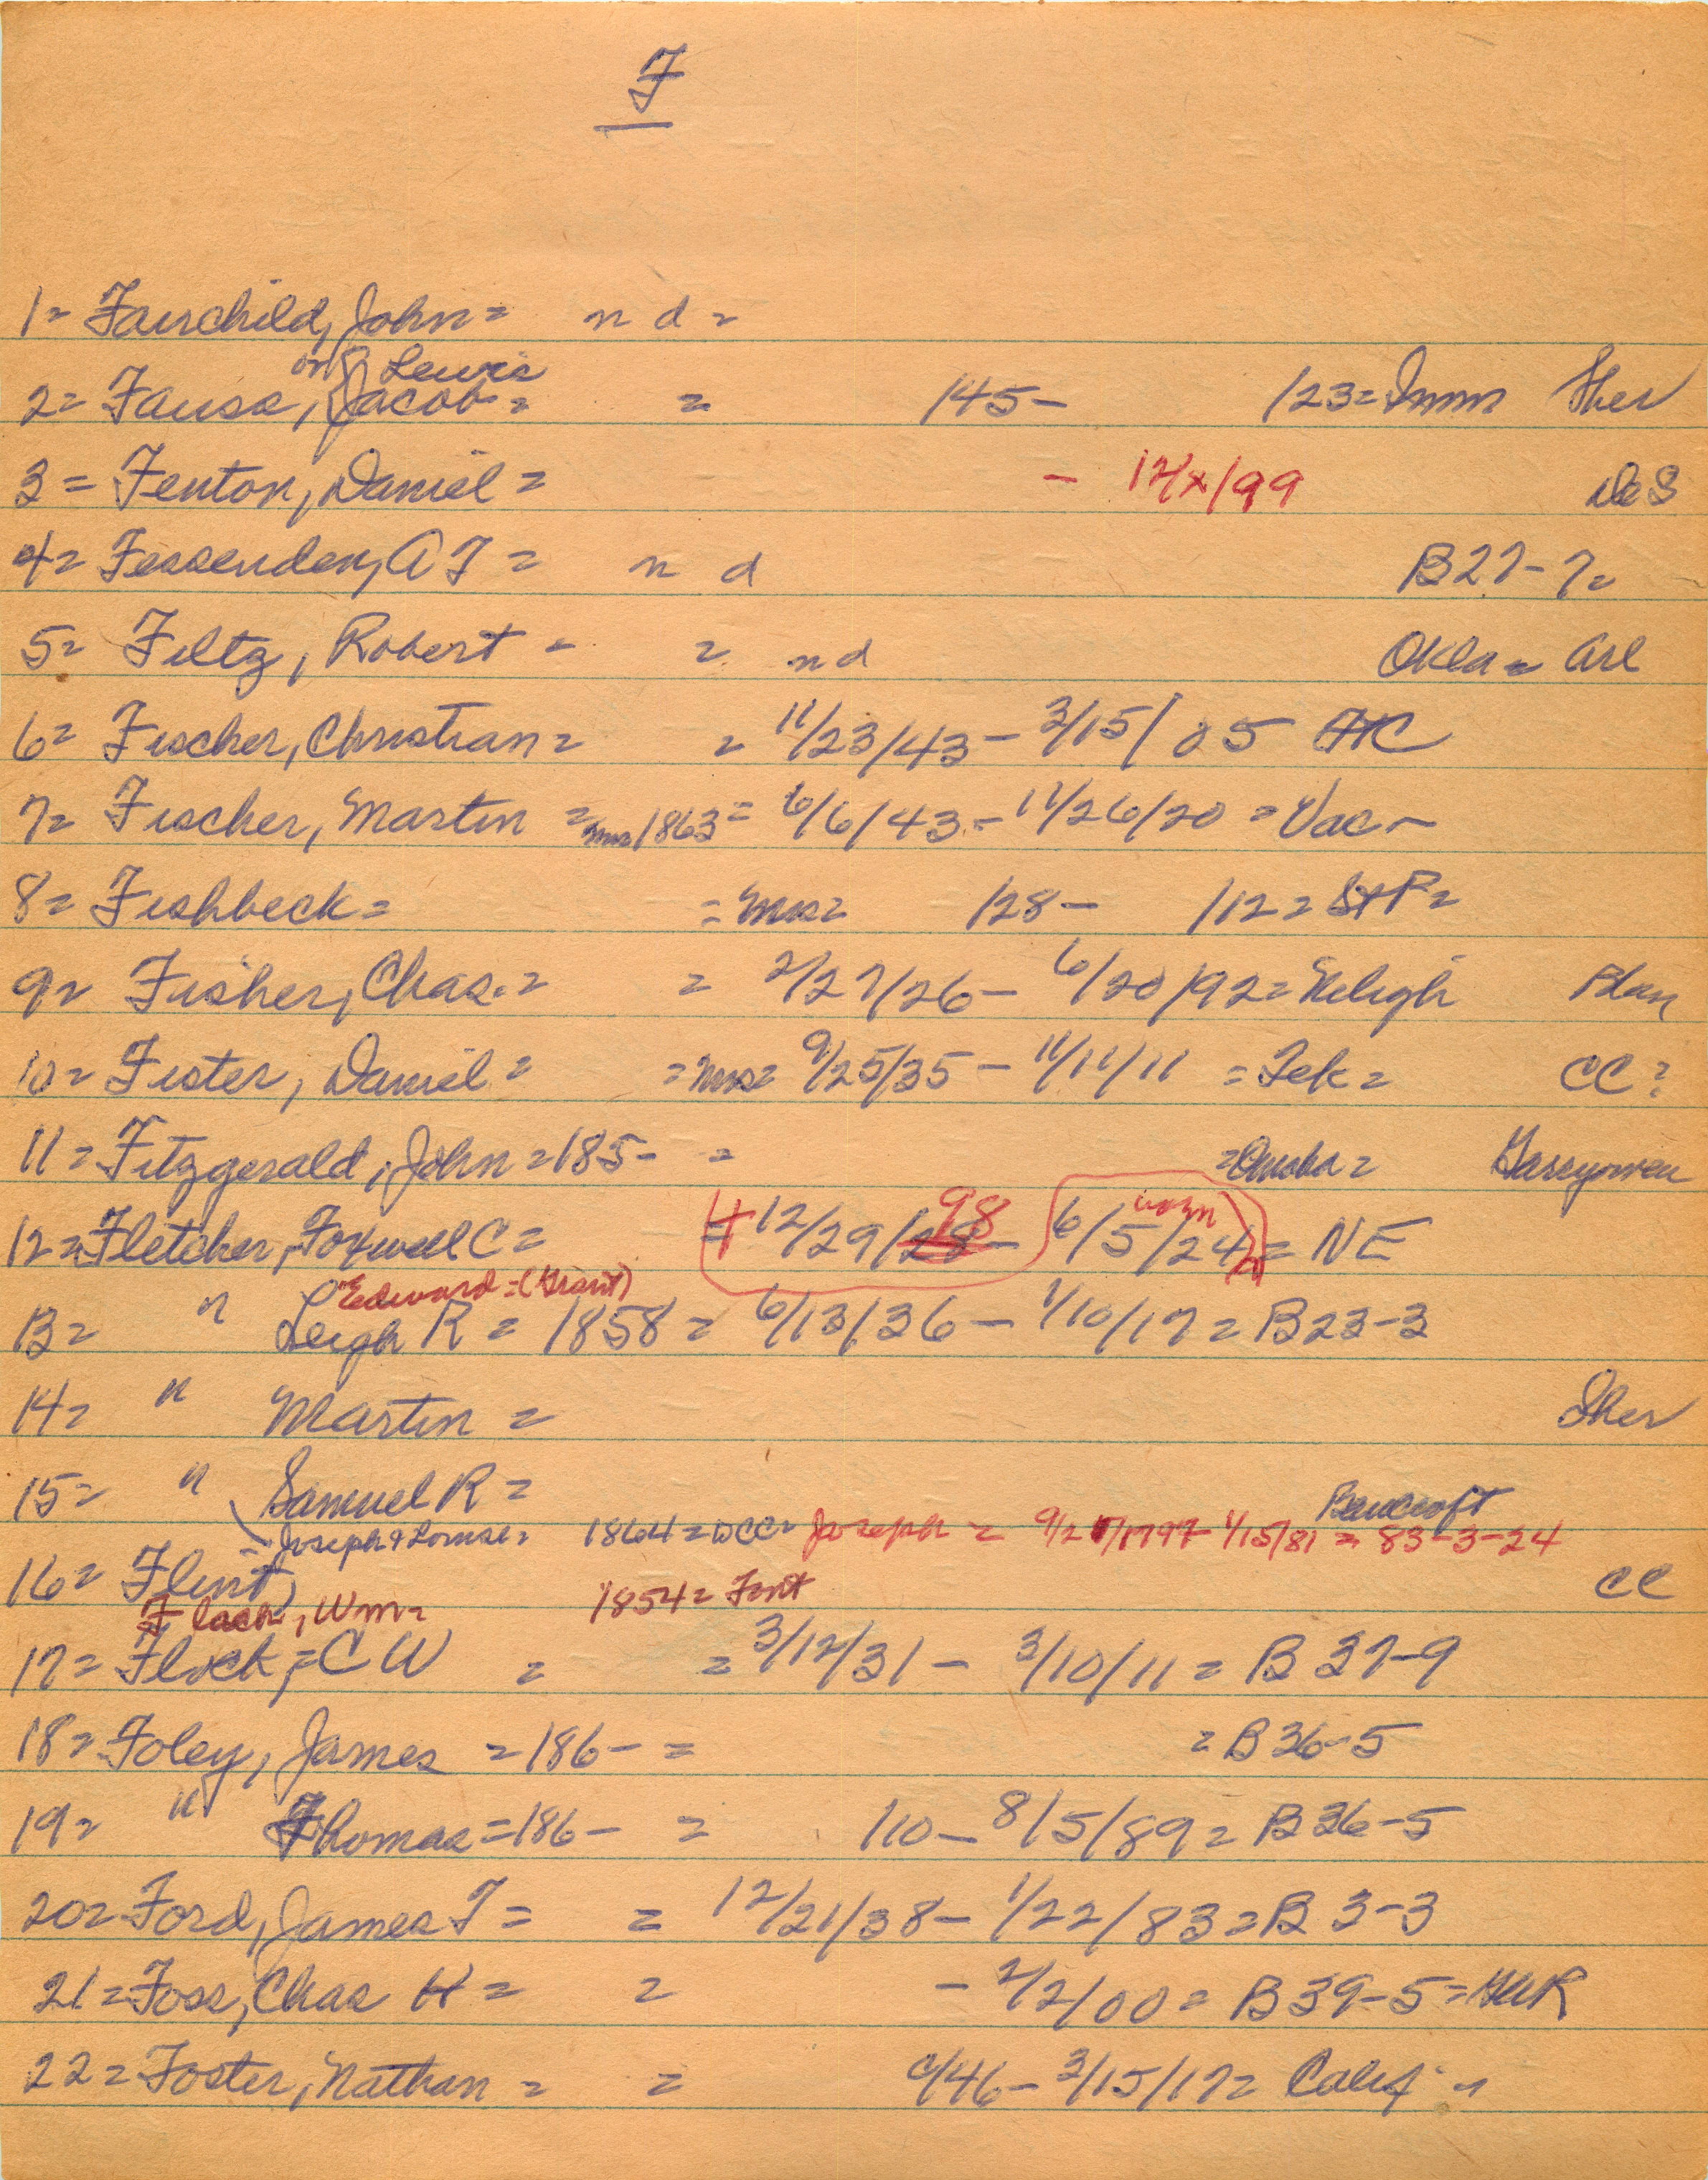 F
1= Fairchild, John = n d =
or Lewis
2= Fauss, Jacob = = /45- /23= Imm Sher
3= Fenton, Daniel = - 12/x/99 DeS
4= Fessenden, A T = n d B27-7=
5= Filtz, Robert - = nd Okla= Arl
6= Fischer, Christian = = 11/23/43 - 3/15/05
7= Fischer, Martin = 1863 = 6/6/43 - 11/26/20 = Vac -
8= Fishbeck = = Mrs= /28- /12= StP=
9= Fisher, Chas. = = 2/27/26- 6/20/92= Neligh Blan
10= Fister, Daniel = =Mrs= 9/25/35 - 11/11/11 = Tek= CC?
11= Fitzgerald, John =185- = =Omaha= Garryowen
12= Fletcher, Foxwell C = = 12/29/28 98 - 6/5/24 = NE
Edward = (Grant)
13= " Leigh R = 1858 = 6/13/36 - 1/10/17 = B23-3
14= " Martin = Sher
15= " Samuel R =
Bancroft
Joseph & Louise= 1864=WCC= Joseph = 1/15/81 = 83-3-24
16= Flint CC
Flack, Wm= 1854= Font
17= Flock, = C W = = 3/12/31 - 3/10/11 = B 37-9
18= Foley, James =186- = = B36-5
19= " Thomas =186- = /10- 8/5/89= B36-5
20= Ford, James T = = 12/21/38- 1/22/83=B 3-3
21= Foss, Chas H = = - 2/2/00= B39-5=
22= Foster, Nathan = = /46- 3/15/17= Calif -